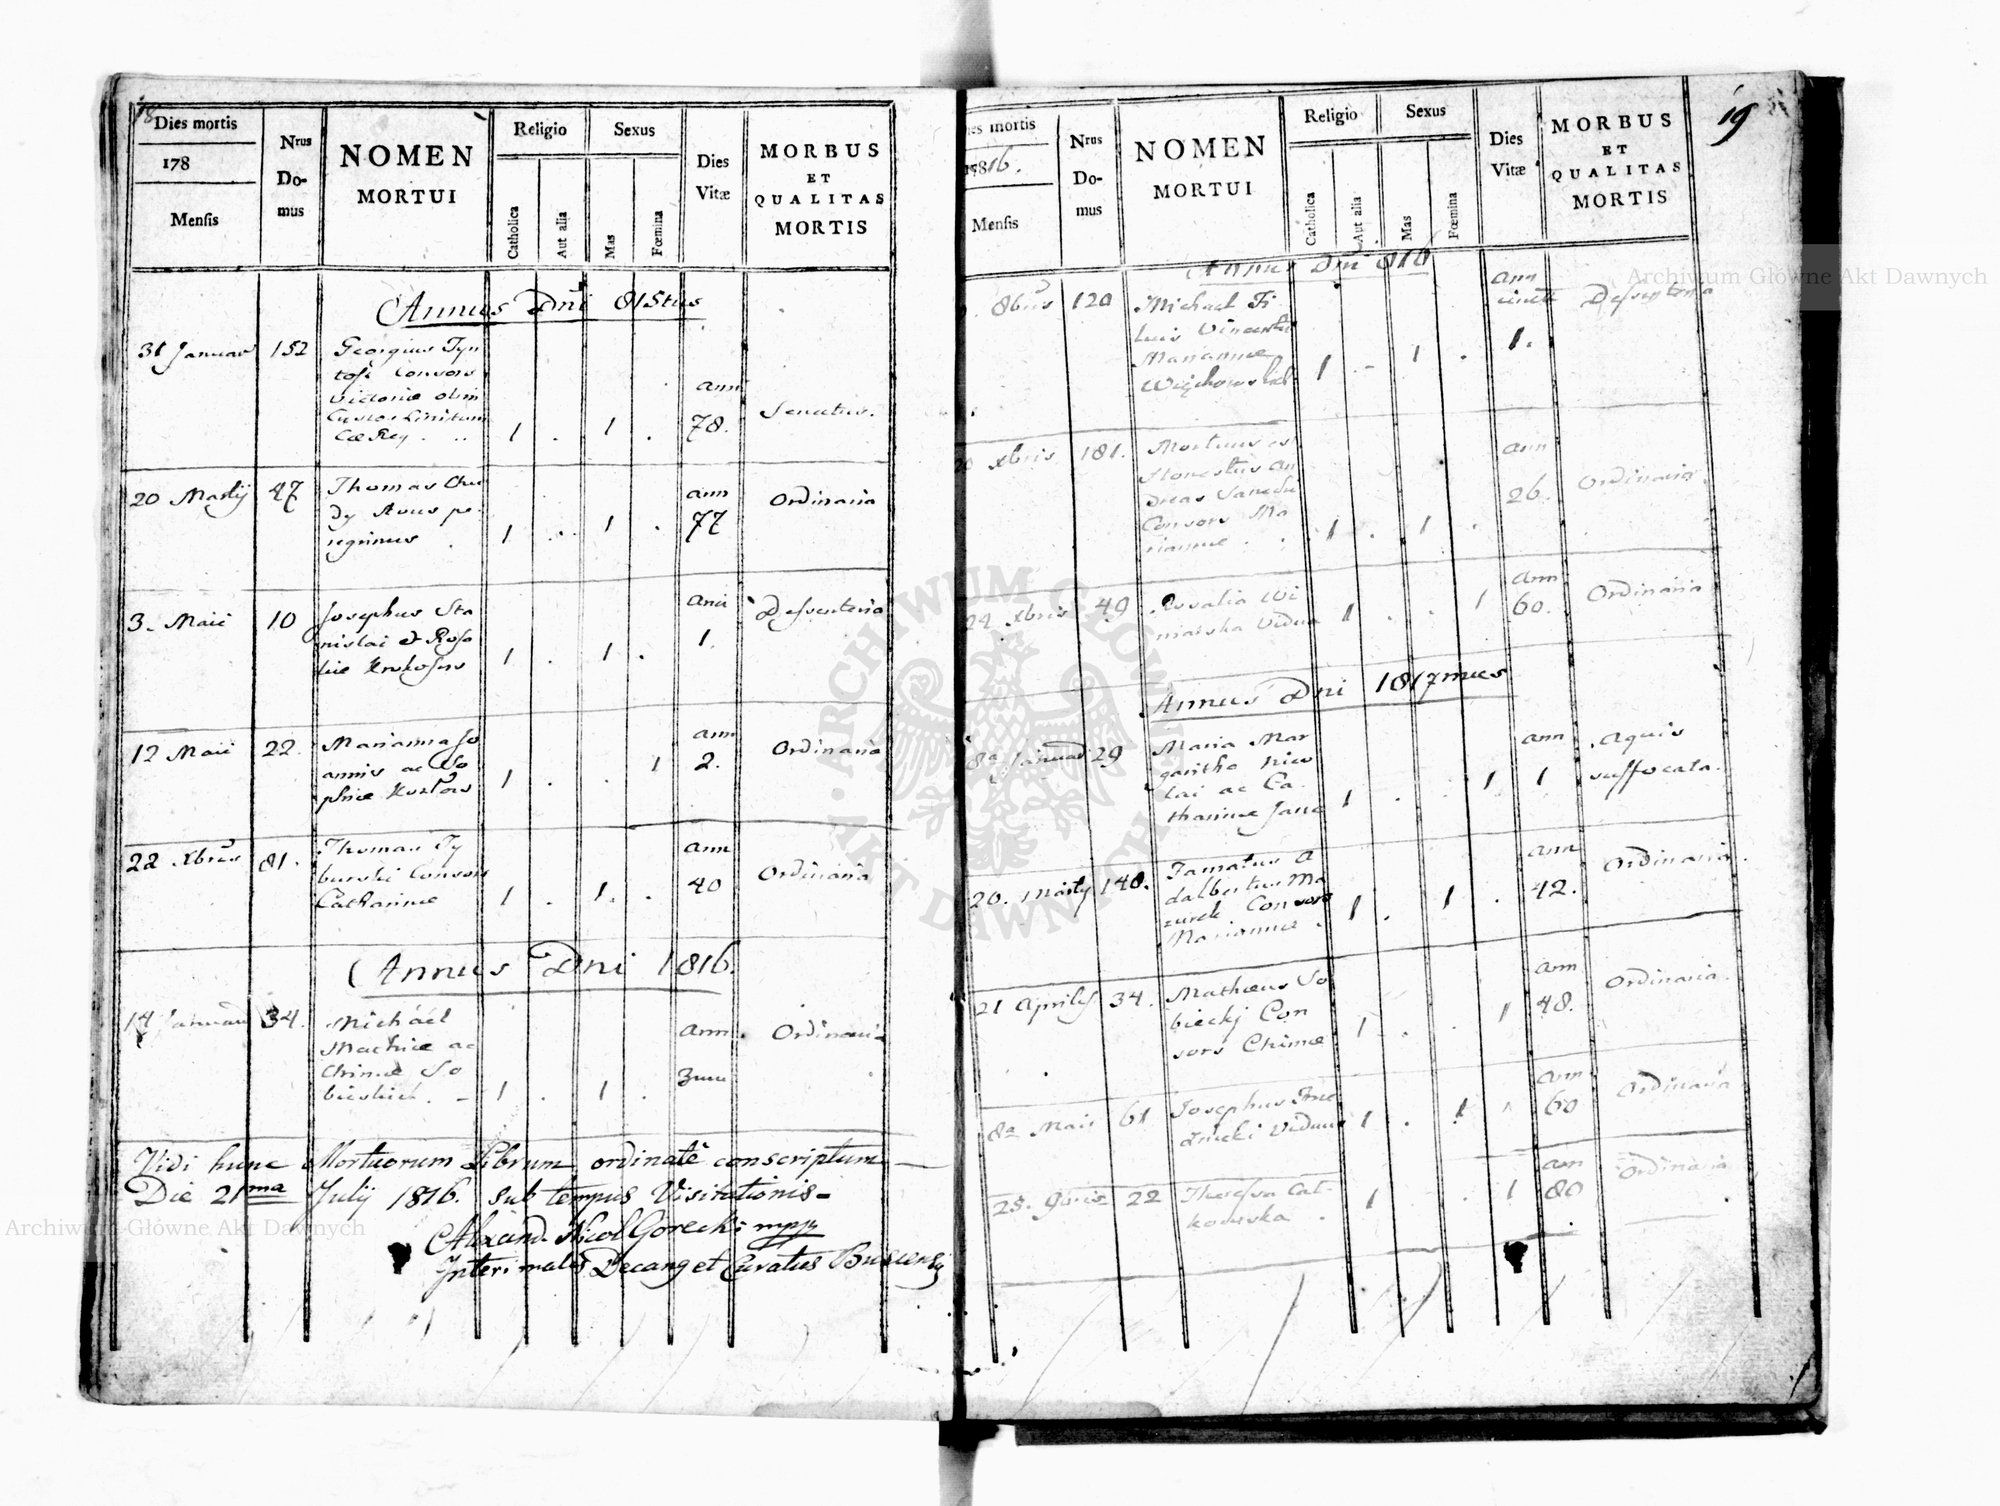 18
Dies mortis
178
Mensis
Nrus
Do-
mus
NOMEN
MORTUI
Religio
Catholica
Aut alia
Sexus
Mas
Fœmina
Dies
Vitæ
MORBUS
ET
QUALITAS
MORTIS
Annus Dni 815tus
31 Januar 152
Georgius Tyn
Consors
Victoriæ olim
ann
78.
1 . 1 .
Senectus.
20 Martij 47
Thomas Chu
dy Avus pe
regrinus
1 . 1 .
ann
77
Ordinaria
3. Maii 10
Josephus Sta
nislai & Rosa
liæ
1 . 1 .
1.
Dyssenteria
12 Maii 22.
Marianna Jo
annis ac So
phiæ
1 . . 1
ann
2.
Ordinaria
22 Xbris 81.
Thomas Ty
burski Consors
Catharinæ
1 . 1. .
ann
40
Ordinaria
Annus Dni 1816.
14 Januar 34.
Michael
Mathiæ ac
Chimæ So
bieskich. -
1 . 1 .
ann
Ordinaria
Vidi hunc Mortuorum Librum ordinatè conscriptum
Die 21ma Julij 1816. sub tempus Visitationis-
Alexand. Nicol Gorecki mpp
Interimalis Decang et Curatus Buscensis
19
Dies mortis
1816.
Mensis
Nrus
Do-
mus
NOMEN
MORTUI
Religio
Catholica
Aut alia
Sexus
Mas
Fœmina
Dies
Vitæ
MORBUS
ET
QUALITAS
MORTIS
Annus Dni 816
8bris 120
Michael Fi
lius Vincentii
Mariannæ
1 - 1 .
ann
1.
Dyssenteria
20 Xbris 181.
Mortuus est
Honestus An
dreas
Consors Ma
riannæ . .
1 . 1 .
ann
26.
Ordinaria
24 Xbris 49
Rosalia Wi
niarska Vidua
1 . . 1
ann
60.
Ordinaria
Annus Dni 1817mus
8a Januar 29
Maria Mar
garitha Nico
lai ac Ca
tharinæ
1 . . 1
ann
1
Aquis
suffocata.
20. Martij 140.
Famatus A
dalbertus Ma
zurek Consors
Mariannæ .
1 . 1 .
ann
42.
Ordinaria.
21 Aprilis 34.
Matheus So
biecki Con
sors Chimæ
1 . . 1
ann
48.
Ordinaria.
8a Maii 61
Josephus
Viduus
1 . 1
ann
60
Ordinaria
25. 9bris 22
Theressa
kowska .
1 . . 1
ann
80
Ordinaria
Archiwum Główne Akt Dawnych
Archiwum Główne Akt Dawnych
ARCHIWUM GŁÓWNE
AKT DAWNYCH